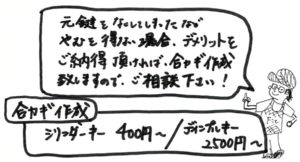 元鍵をなくしてしまったなど
やむを得ない場合、デメリットを
ご納得頂ければ、合カギ作成
致しますので、ご相談下さい!
合カギ作成
シリンダーキー 400円~/ディンプルキー
2500円~